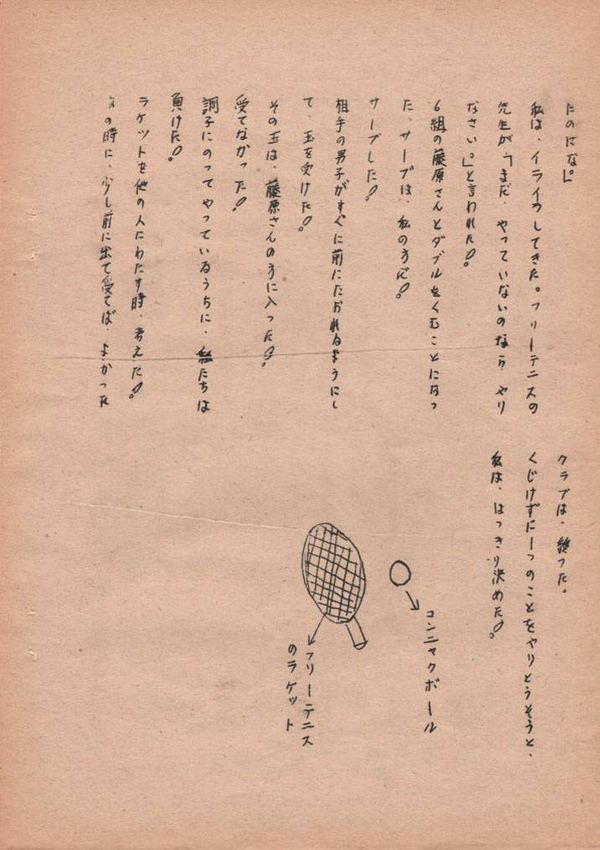 たのにな」
私は、イライラしてきた。フリーテニスの
先生が「まだ、やっていないのなら、やり
なさい。」と言われた。
6組の藤原さんとダブルをくむことになっ
た。サーブは、私の方だ。
サーブした。
相手の男子がすぐに前にたおれるようにし
て、玉を受けた。
その玉は、藤原さんの方に入った。
受てなかった。
調子にのってやっているうちに、私たちは
負けた。
ラケットを他の人にわたす時、考えた。
の時に、少し前に出て受てば、よかった
クラブは、終った。
くじけずに一つのことをやりとうそうと、
私は、はっきり決めた。
コンニャクボール
フリーテニス
のラケット